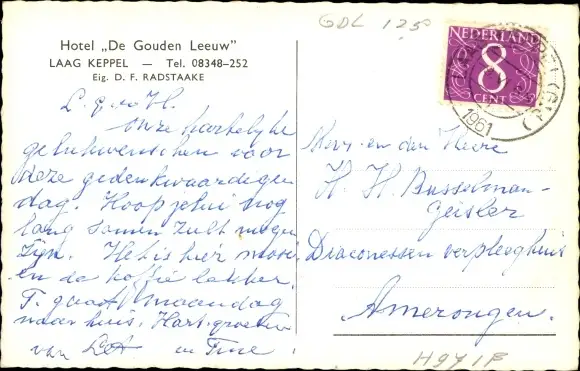 Hotel „De Gouden Leeuw”
LAAG KEPPEL — Tel. 08348-252
Eig. D. F. RADSTAAKE
GDL 12,5
NEDERLAND
8
CENT
1961
L. g. v. H.
Onze hartelijke
gelukwenschen voor
deze gedenkwaardigen
dag. Hoop jelui nog
lang samen zult mogen
zijn. Het is hier mooi
en de koffie lekker.
T. gaat maandag
naar huis. Hart. groeten
van en Tine
Mevr. en den Heere
H. H. Busselman-
Geisler
Diaconessen verpleeghuis
Amerongen.
H971F